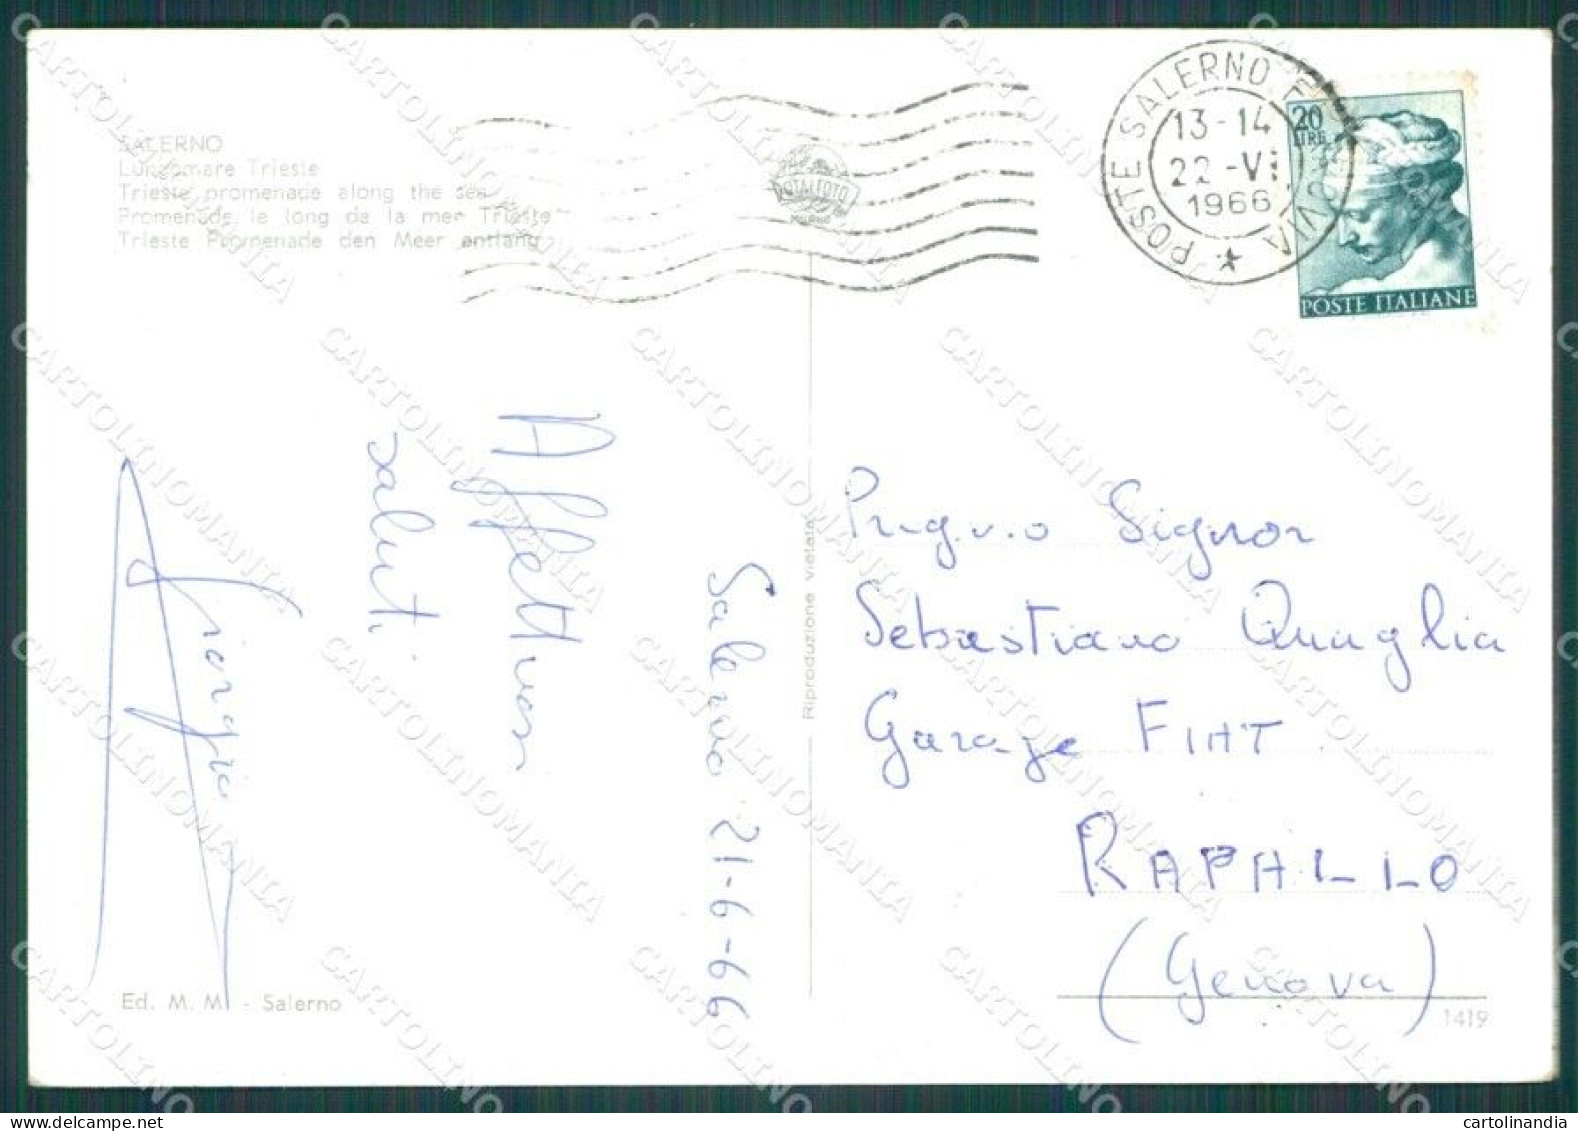 SALERNO
Lungomare Trieste
Trieste promenade along the sea
Promenade le long de la mer Trieste
Trieste Promenade den Meer entlang
TOTALFOTO
MILANO
POSTE SALERNO FERROVIA
13-14
22-VI
1966
20
LIRE
POSTE ITALIANE
Salerno 21-6-66
Affettuosi
saluti
Giorgio
Ed. M. M. - Salerno
Riproduzione vietata
Preg.v.o Signor
Sebastiano Quaglia
Garage FIAT
RAPALLO
(Genova)
1419
CARTOLINOMANIA
delcampe.net
cartolinandia